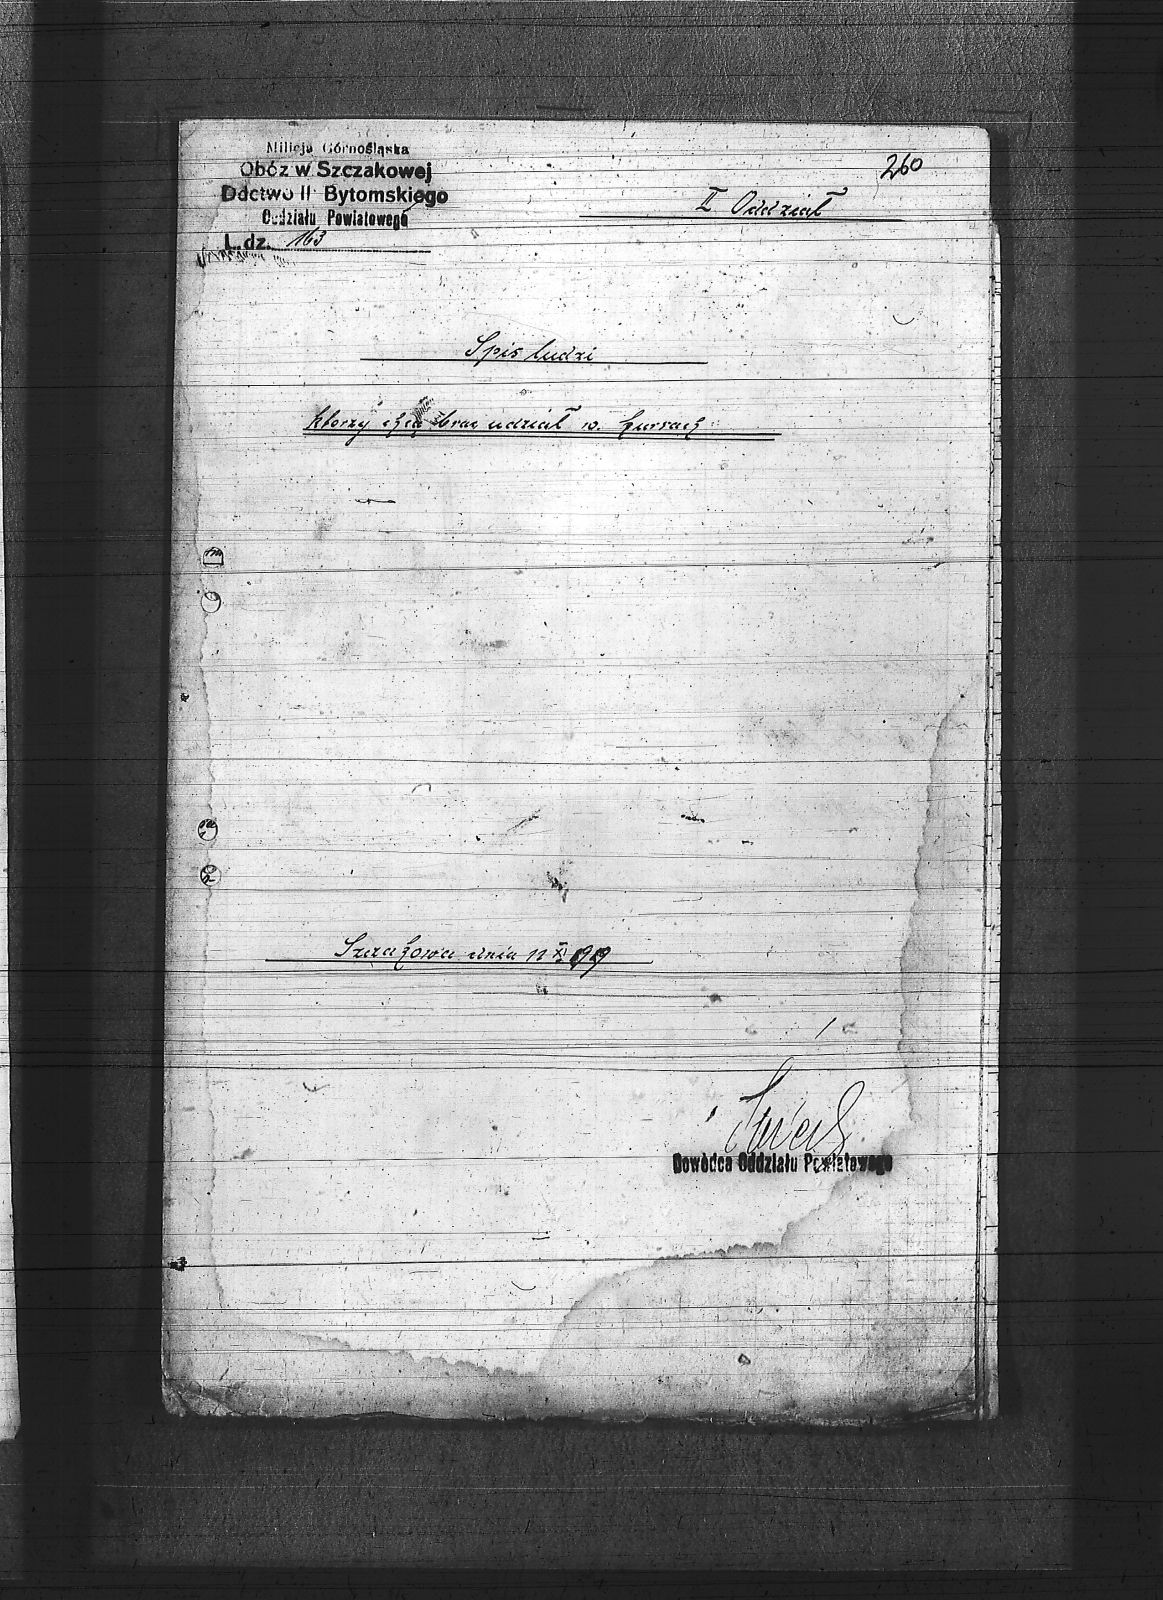 Milicja Górnośląska
Obóz w Szczakowej
Ddctwo II Bytomskiego
Oddziału Powiatowego
L. dz. 163
260
II Oddział
Spis ludzi
ktorzy chcą brac udział w. kursach
Szczakowa dnia 11 XI 1919
Dowódca Oddziału Powiatowego